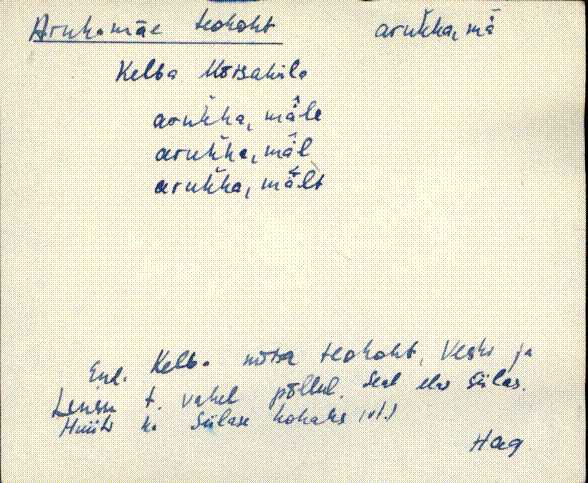 Arukamäe teokoht arukka, mä
Kelba Mõisaküla
arukka, mäle
arukka, mäl
arukka, mält
End. Kelb. mõisa teokoht, Veski ja
Lensu t. vahel põllul. Seal elas Siilas.
Hüüti ka Siilase kohaks
Hag